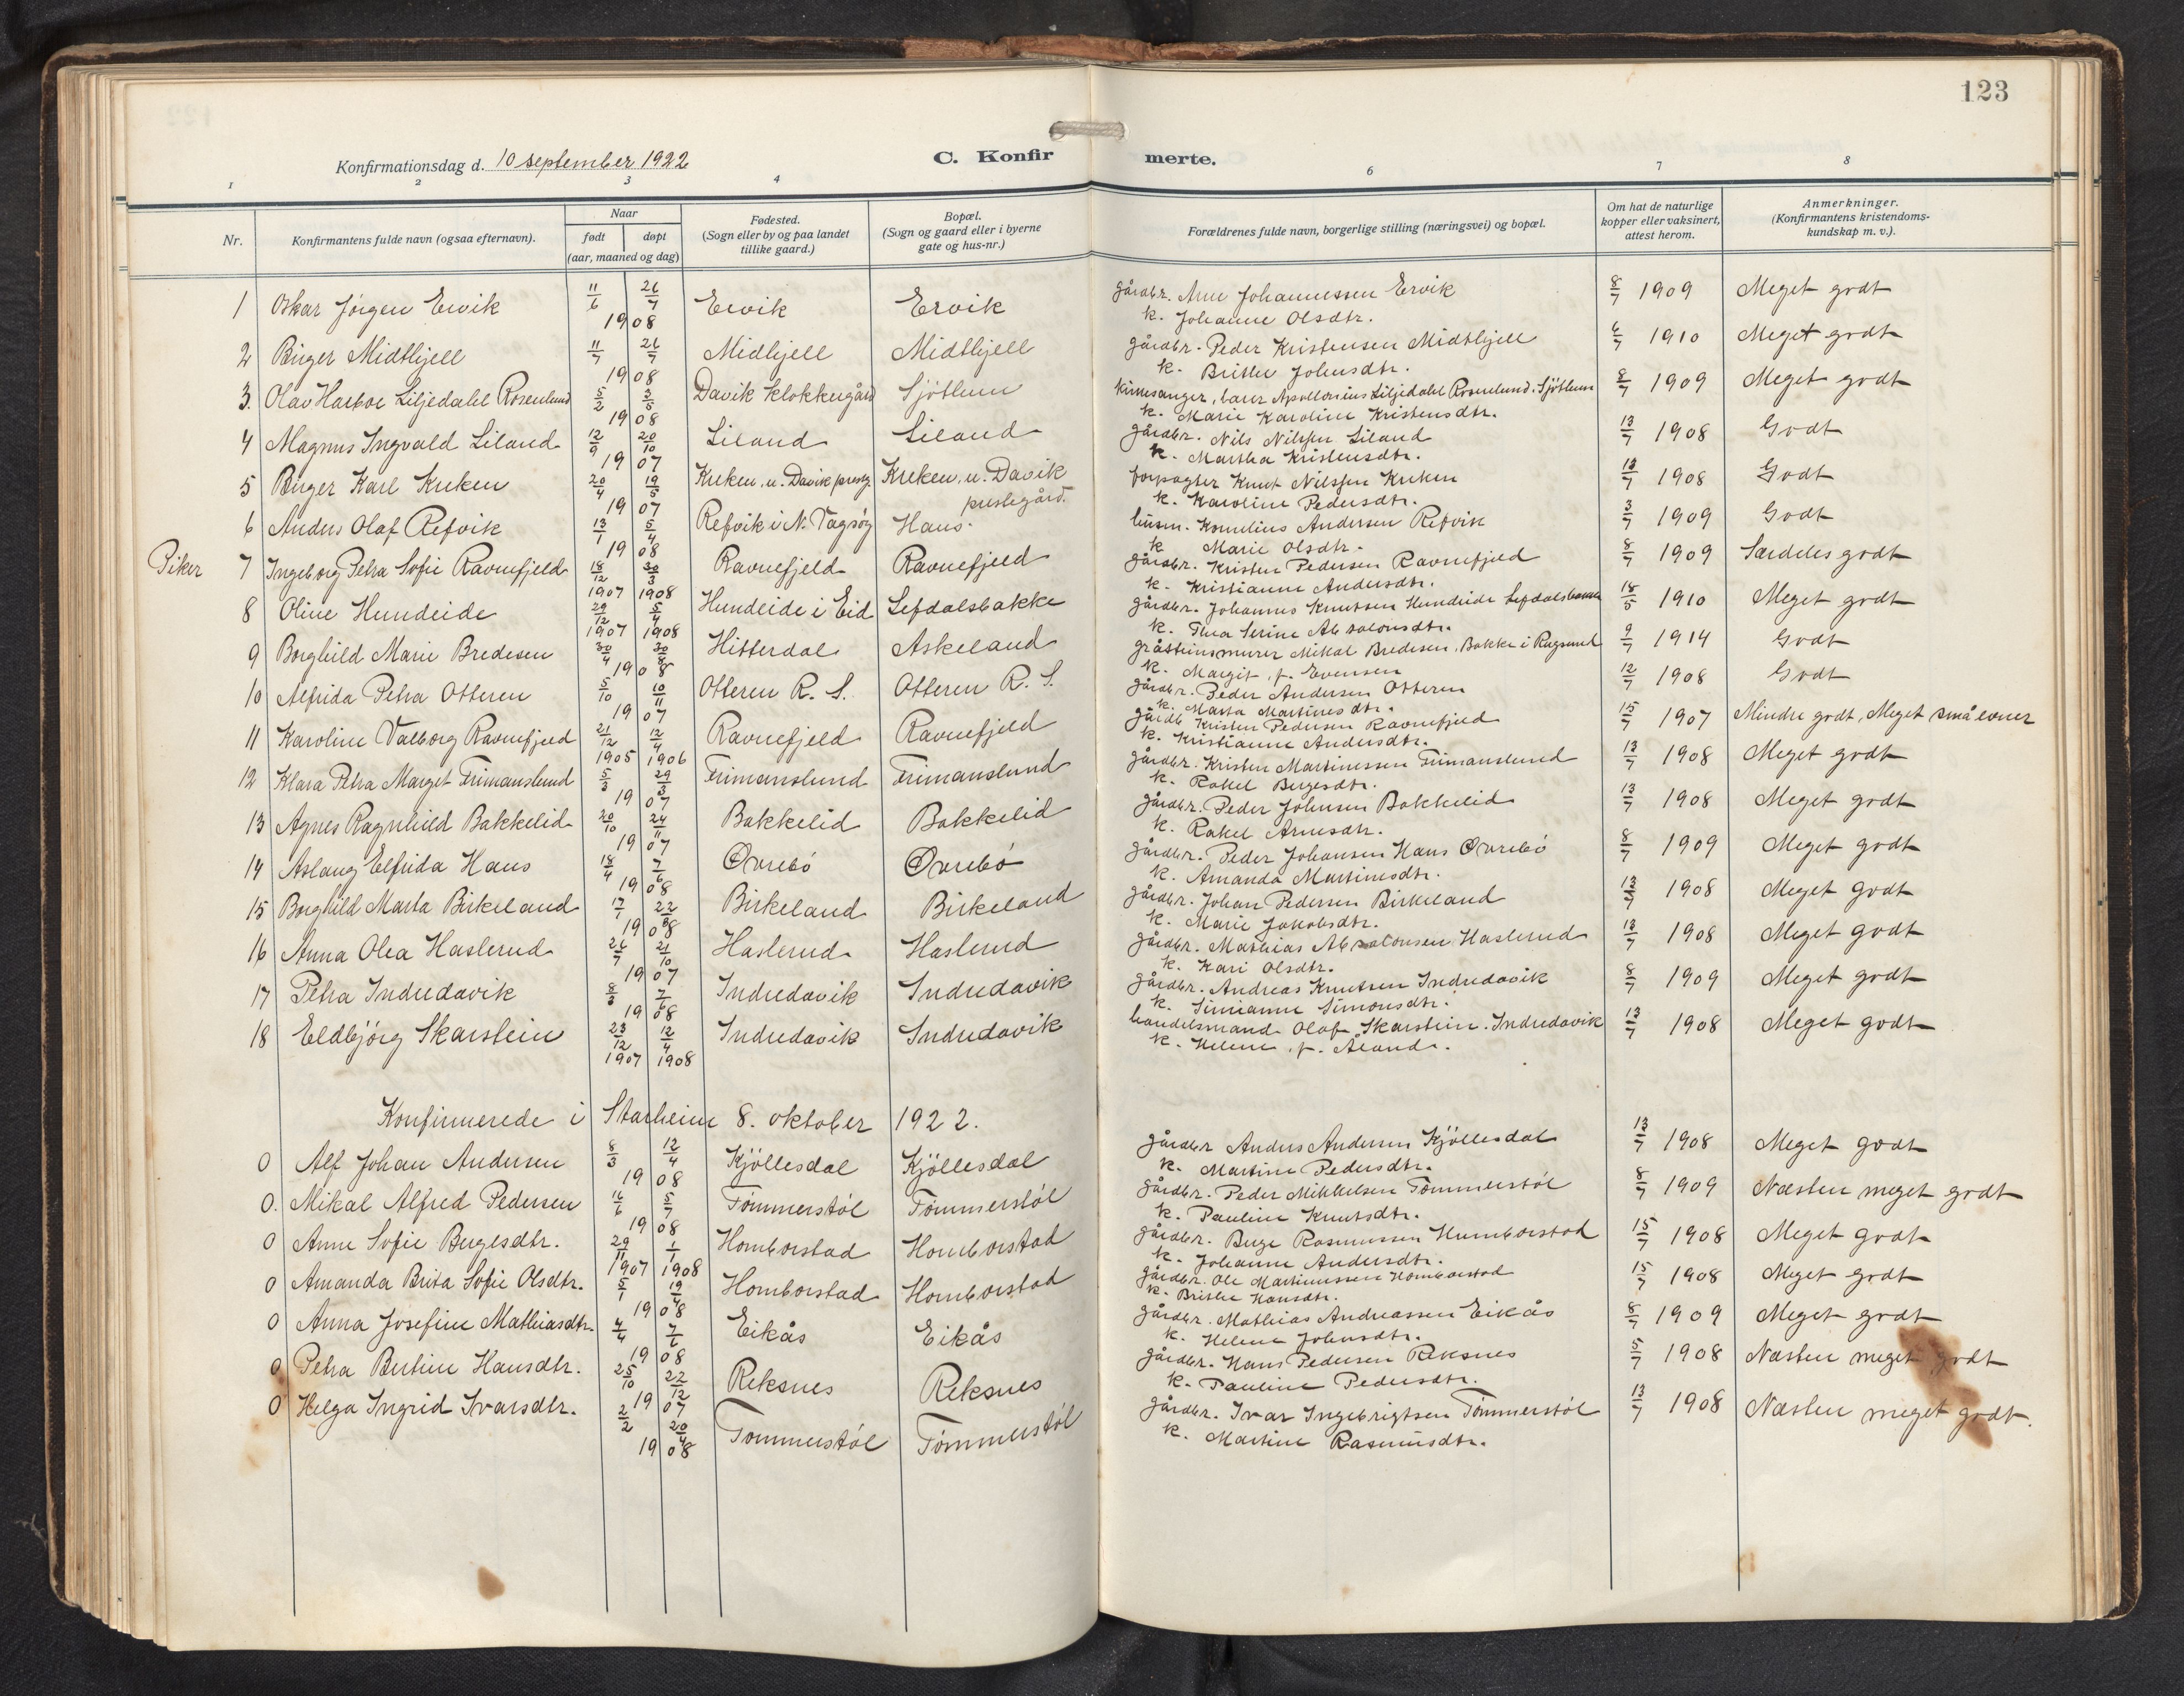 123
Konfirmationsdag d. 10 september 1922
C. Konfirmerte.
1 2 3 4 6 7 8
Nr.
Konfirmantens fulde navn (ogsaa efternavn).
Naar
født døpt
(aar, maaned og dag)
Fødested.
(Sogn eller by og paa landet
tillike gaard.)
Bopæl.
(Sogn og gaard eller i byerne
gate og hus-nr.)
Forældrenes fulde navn, borgerlige stilling (næringsvei) og bopæl.
Om hat de naturlige
kopper eller vaksinert,
attest herom.
Anmerkninger.
(Konfirmantens kristendoms-
kundskap m. v.).
1 Oskar Jørgen Ervik 11/6 26/7 Ervik Ervik gårdbr. Johannessen Ervik 8/7 1909 Meget godt
1908 k. Johanne Olsdtr.
2 Birger Midthjell 11/7 26/7 Midhjell Midthjell gårdbr. Peder Kristensen Midthjell 6/7 1910 Meget godt
1908 k. Brithe Johnsdtr.
3. Olav Harboe Liljedahl Rosenlund 5/2 3/5 Davik klokkergård Sjöthun kirkesanger, lærer Apollonius Liljedahl Rosenlund. Sjöthun 8/7 1909 Meget godt
1908 k. Marie Karoline Kristensdtr.
4 Magnus Ingvald Liland 12/9 20/10 Liland Liland gårdbr. Nils Nilssen Liland 13/7 1908 Godt
1907 k. Martha Kristensdtr.
5 Birger Karl Kreken 20/4 19/5 Kreken, u. Davik prestg Kreken, u. Davik prestegård. forpagter Knut Nilssen Kreken 13/7 1908 Godt
1907 k. Karoline Pedersdtr.
6 Anders Olaf Refvik 13/1 5/4 Refvik i N. Vagsøy Haus. husm. Kornelius Andersen Refvik 3/7 1909 Godt
1908 k Marie Olsdtr.
Piker 7 Ingeborg Petra Sofie Ravnefjeld 18/12 30/3 Ravnefjeld Ravnefjeld gårdbr. Kristen Pedersen Ravnefjeld 8/7 1909 Særdeles godt
1907 1908 k. Kristianne Andersdtr.
8 Oline Hundeide 29/12 5/4 Hundeide i Eid Lefdalsbakke gårdbr. Johannes Knutsen Hundeide Lefdalsbakke 18/5 1910 Meget godt
1907 1908 k. Thea Serine Absalonsdtr.
9 Borghild Marie Bredesen 30/4 30/8 Hitterdal Askeland gråsteinsmurer Mikal Bredesen, Bakke i Rugsund 9/7 1914 Godt
1908 k. Margit, f. Evensen
10 Alfrida Petra Otteren 5/10 10/11 Otteren R. S. Otteren R. S. gårdbr. Peder Andersen Otteren 12/7 1908 Godt
1907 k. Marta Martinesdtr.
11 Karoline Valborg Ravnefjeld 21/12 12/4 Ravnefjeld Ravnefjeld gårdb Kristen Pedersen Ravnefjeld 15/7 1907 Mindre godt, Meget små evner
1905 1906 k. Kristianne Andersdtr.
12 Klara Petra Marget Frimanslund 5/3 29/3 Frimanslund Frimanslund gårdbr. Kristen Martinussen Frimanslund 13/7 1908 Meget godt
1907 k. Rakel Birgesdtr.
13 Agnes Ragnhild Bakkelid 20/10 24/11 Bakkelid Bakkelid gårdbr. Peder Johnsen Bakkelid 13/7 1908 Meget godt
1907 k. Rakel Arnesdtr.
14 Aslaug Elfrida Haus 18/4 7/6 Øvrebö Øvrebö gårdbr. Peder Johansen Haus Øvrebö 8/7 1909 Meget godt
1908 k. Amanda Martinesdtr.
15 Borghild Marta Birkeland 17/7 22/8 Birkeland Birkeland gårdbr. Johan Pedersen Birkeland 13/7 1908 Meget godt
1908 k. Marie Jakobsdtr.
16 Anna Olea Haslerud 26/7 21/10 Haslerud Haslerud gårdbr. Mathias Absalonsen Haslerud 13/7 1908 Meget godt
1907 k. Kari Olsdtr.
17 Petra Indredavik 8/3 7/6 Indredavik Indredavik gårdbr. Andreas Knutsen Indredavik 8/7 1909 Meget godt
1908 k. Simianne Simonsdtr.
18 Eldbjörg Skarstein 23/12 12/4 Indredavik Indredavik handelsmand Olaf Skarstein. Indredavik 13/7 1908 Meget godt
1907 1908 k. Helene, f. Aland.
Konfirmerede i Starheim 8. oktober 1922.
0 Alf Johan Andersen 8/3 12/4 Kjöllesdal Kjöllesdal gårdbr Anders Andersen Kjöllesdal 13/7 1908 Meget godt
1908 k. Martine Pedersdtr.
0. Mikal Alfred Pedersen 16/6 5/7 Tömmerstöl Tömmerstöl gårdbr. Peder Mikkelsen Tömmerstöl 8/7 1909 Næsten meget godt
1908 k. Pauline Knutsdtr.
0 Anne Sofie Birgesdtr. 29/11 1/1 Homborstad Homborstad gårdbr. Birge Rasmussen Humborstad 15/7 1908 Meget godt
1907 1908 k. Johanne Andersdtr.
0 Amanda Brita Sofie Olsdtr. 5/1 19/4 Homborstad Homborstad gårdbr. Ole Martinussen Homborstad 15/7 1908 Meget godt
1908 k. Brithe Hansdtr.
0 Anna Josefine Mathiasdtr. 4/4 7/6 Eikås Eikås gårdbr. Mathias Andreassen Eikås 8/7 1909 Meget godt
1908 k. Helene Johnsdtr.
0 Petra Bertine Hansdtr. 25/10 22/12 Reksnes Reksnes gårdbr. Hans Pedersen Reksnes 5/7 1908 Næsten meget godt
1907 k. Pauline Pedersdtr.
0 Helga Ingrid Ivarsdtr. 2/2 20/4 Tommerstöl Tömmerstöl gårdbr. Ivar Ingebrigtsen Tömmerstöl 13/7 1908 Næsten meget godt.
1908 k. Martine Rasmusdtr.